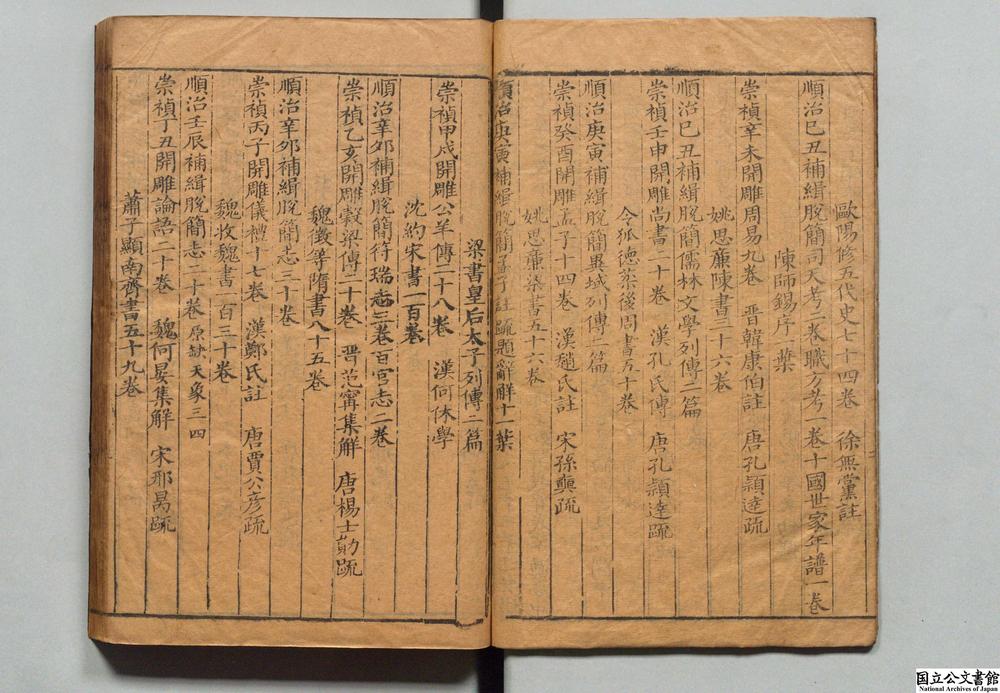 歐陽修五代史七十四卷　徐無黨註
順治己丑補緝脫簡司天考二卷職方考一卷十國世家年譜一卷
陳師錫序一葉
崇禎辛未開雕周易九卷　晋韓康伯註　唐孔頴達疏
姚思廉陳書三十六卷
順治己丑補緝脫簡儒林文學列傳二篇
崇禎壬申開雕尚書二十卷　漢孔氏傳　唐孔頴達疏
令狐德棻後周書五十卷
順治庚寅補緝脫簡異域列傳二篇
崇禎癸酉開雕孟子十四卷　漢趙氏註　宋孫奭疏
姚思廉梁書五十六卷
順治庚寅補緝脫簡孟子註疏題辭解十一葉
梁書皇后太子列傳二篇
崇禎甲戌開雕公羊傳二十八卷　漢何休學
沈約宋書一百卷
順治辛卯補緝脫簡符瑞志三卷百官志二卷
崇禎乙亥開雕穀梁傳二十卷　晋范甯集解　唐楊士勛疏
魏徵等隋書八十五卷
順治辛卯補緝脫簡志三十卷
崇禎丙子開雕儀禮十七卷　漢鄭氏註　唐賈公彥疏
魏收魏書一百三十卷
順治壬辰補緝脫簡志二十卷原缺天象三四
崇禎丁丑開雕論語二十卷　魏何晏集解　宋邢昺疏
蕭子顯南齊書五十九卷
国立公文書館
National Archives of Japan